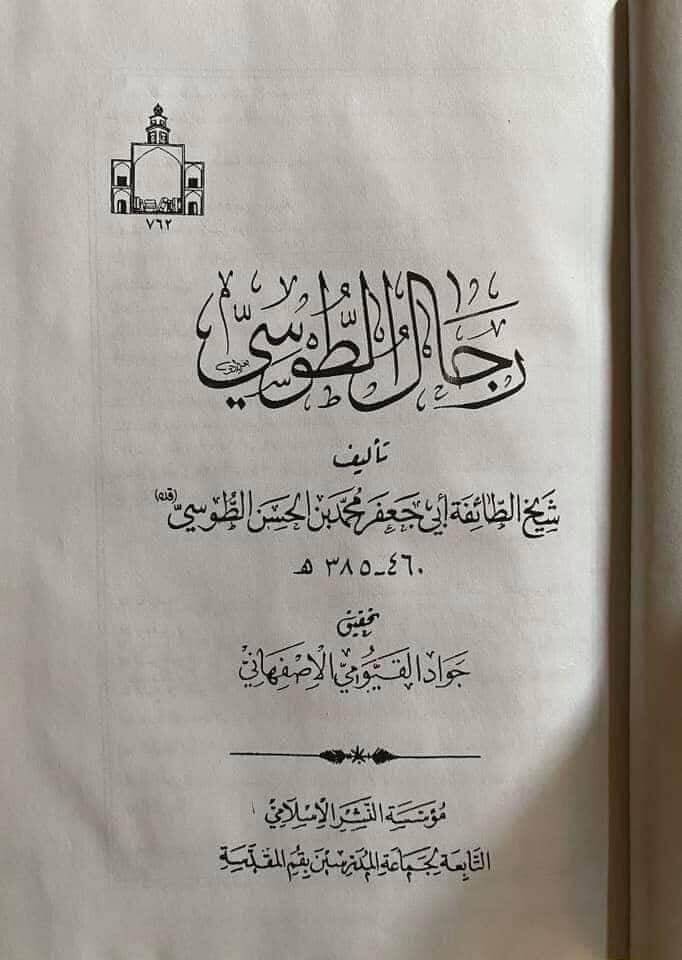 ٧٦٢
رجَالُ الطُّوسيّ
تأليف
شيخ الطائفة أبي جعفر محمّد بن الحسن الطُّوسيّ (قده)
٣٨٥-٤٦٠ هـ
تحقيق
جواد القيّومي الإصفهانيّ
مؤسسة النشر الإسلاميّ
التابعة لجماعة المدرسين بقم المقدّسة